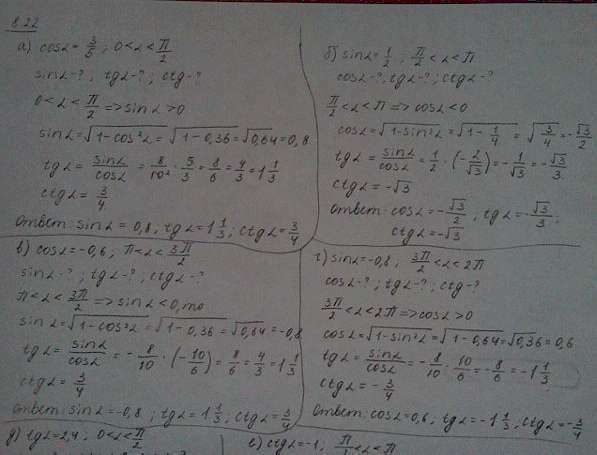 8.22
а) cosα = 3/5 ; 0<α<π/2
sinα-? ; tgα-? ; ctgα-?
0<α<π/2 => sinα>0
sinα = √1-cos²α = √1-0,36 = √0,64 = 0,8
tgα = sinα/cosα = 8/10 · 5/3 = 8/6 = 4/3 = 1 1/3
ctgα = 3/4
Ответ: sinα = 0,8 ; tgα = 1 1/3 ; ctgα = 3/4
б) sinα = 1/2 ; π/2<α<π
cosα-? , tgα-? ; ctgα-?
π/2<α<π => cosα<0
cosα = √1-sin²α = √1-1/4 = √3/4 = -√3/2
tgα = sinα/cosα = 1/2 · (-2/√3) = -1/√3 = -√3/3
ctgα = -√3
Ответ: cosα = -√3/2 ; tgα = -√3/3 ;
ctgα = -√3
в) cosα = -0,6 ; π<α<3π/2
sinα-? ; tgα-? ; ctgα-?
π<α<3π/2 => sinα<0, то
sinα = √1-cos²α = √1-0,36 = √0,64 = -0,8
tgα = sinα/cosα = -8/10 · (-10/6) = 8/6 = 4/3 = 1 1/3
ctgα = 3/4
Ответ: sinα = -0,8 ; tgα = 1 1/3 ; ctgα = 3/4
г) sinα = -0,8 ; 3π/2<α<2π
cosα-? ; tgα-? ; ctg-?
3π/2<α<2π => cosα>0
cosα = √1-sin²α = √1-0,64 = √0,36 = 0,6
tgα = sinα/cosα = -8/10 · 10/6 = -8/6 = -1 1/3
ctgα = -3/4
Ответ: cosα = 0,6 ; tgα = -1 1/3 ; ctgα = -3/4
д) tgα = 2,4 ; 0<α<π/2
е) ctgα = -1 ; π/2<α<π